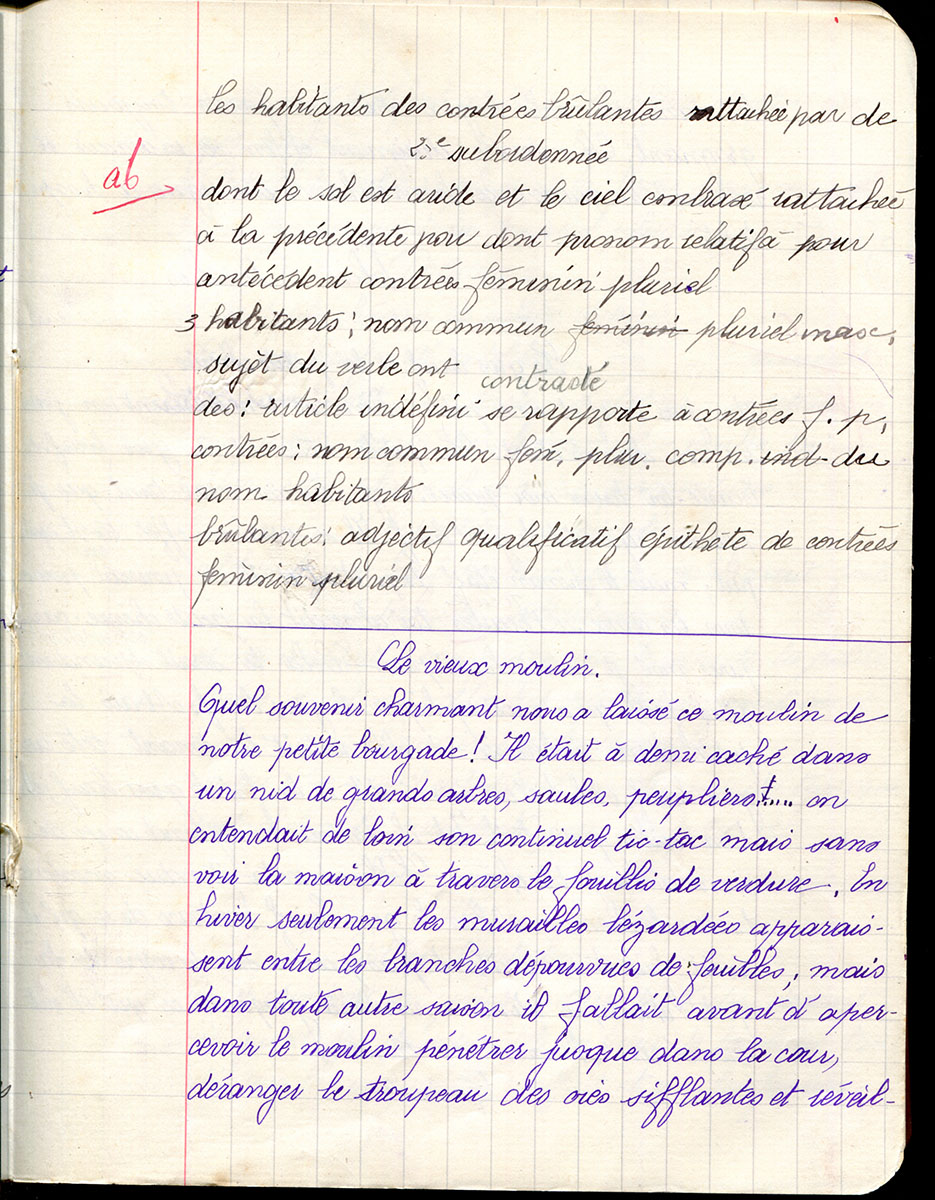 les habitants des contrées brûlantes rattachée par de
2e subordonnée
ab
dont le sol est aride et le ciel contrasé rattachée
à la précédente par dont pronom relatif à pour
antécédent contrées féminin pluriel
3 habitants : nom commun féminin pluriel masc.
sujet du verbe ont
contrasté
des : article indéfini se rapporte à contrées f. p.
contrées : nom commun fém. plur. comp. ind. du
nom habitants
brûlantes : adjectif qualificatif épithète de contrées
féminin pluriel
Le vieux moulin.
Quel souvenir charmant nous a laissé ce moulin de
notre petite bourgade ! Il était à demi caché dans
un nid de grands arbres, saules, peupliers .... on
entendait de loin son continuel tic-tac mais sans
voir la maison à travers le fouillis de verdure. En
hiver seulement les murailles lézardées apparais-
sent entre les branches dépourvues de feuilles, mais
dans toute autre saison il fallait avant d'aper-
cevoir le moulin pénétrer jusque dans la cour,
déranger le troupeau des oies sifflantes et réveil-